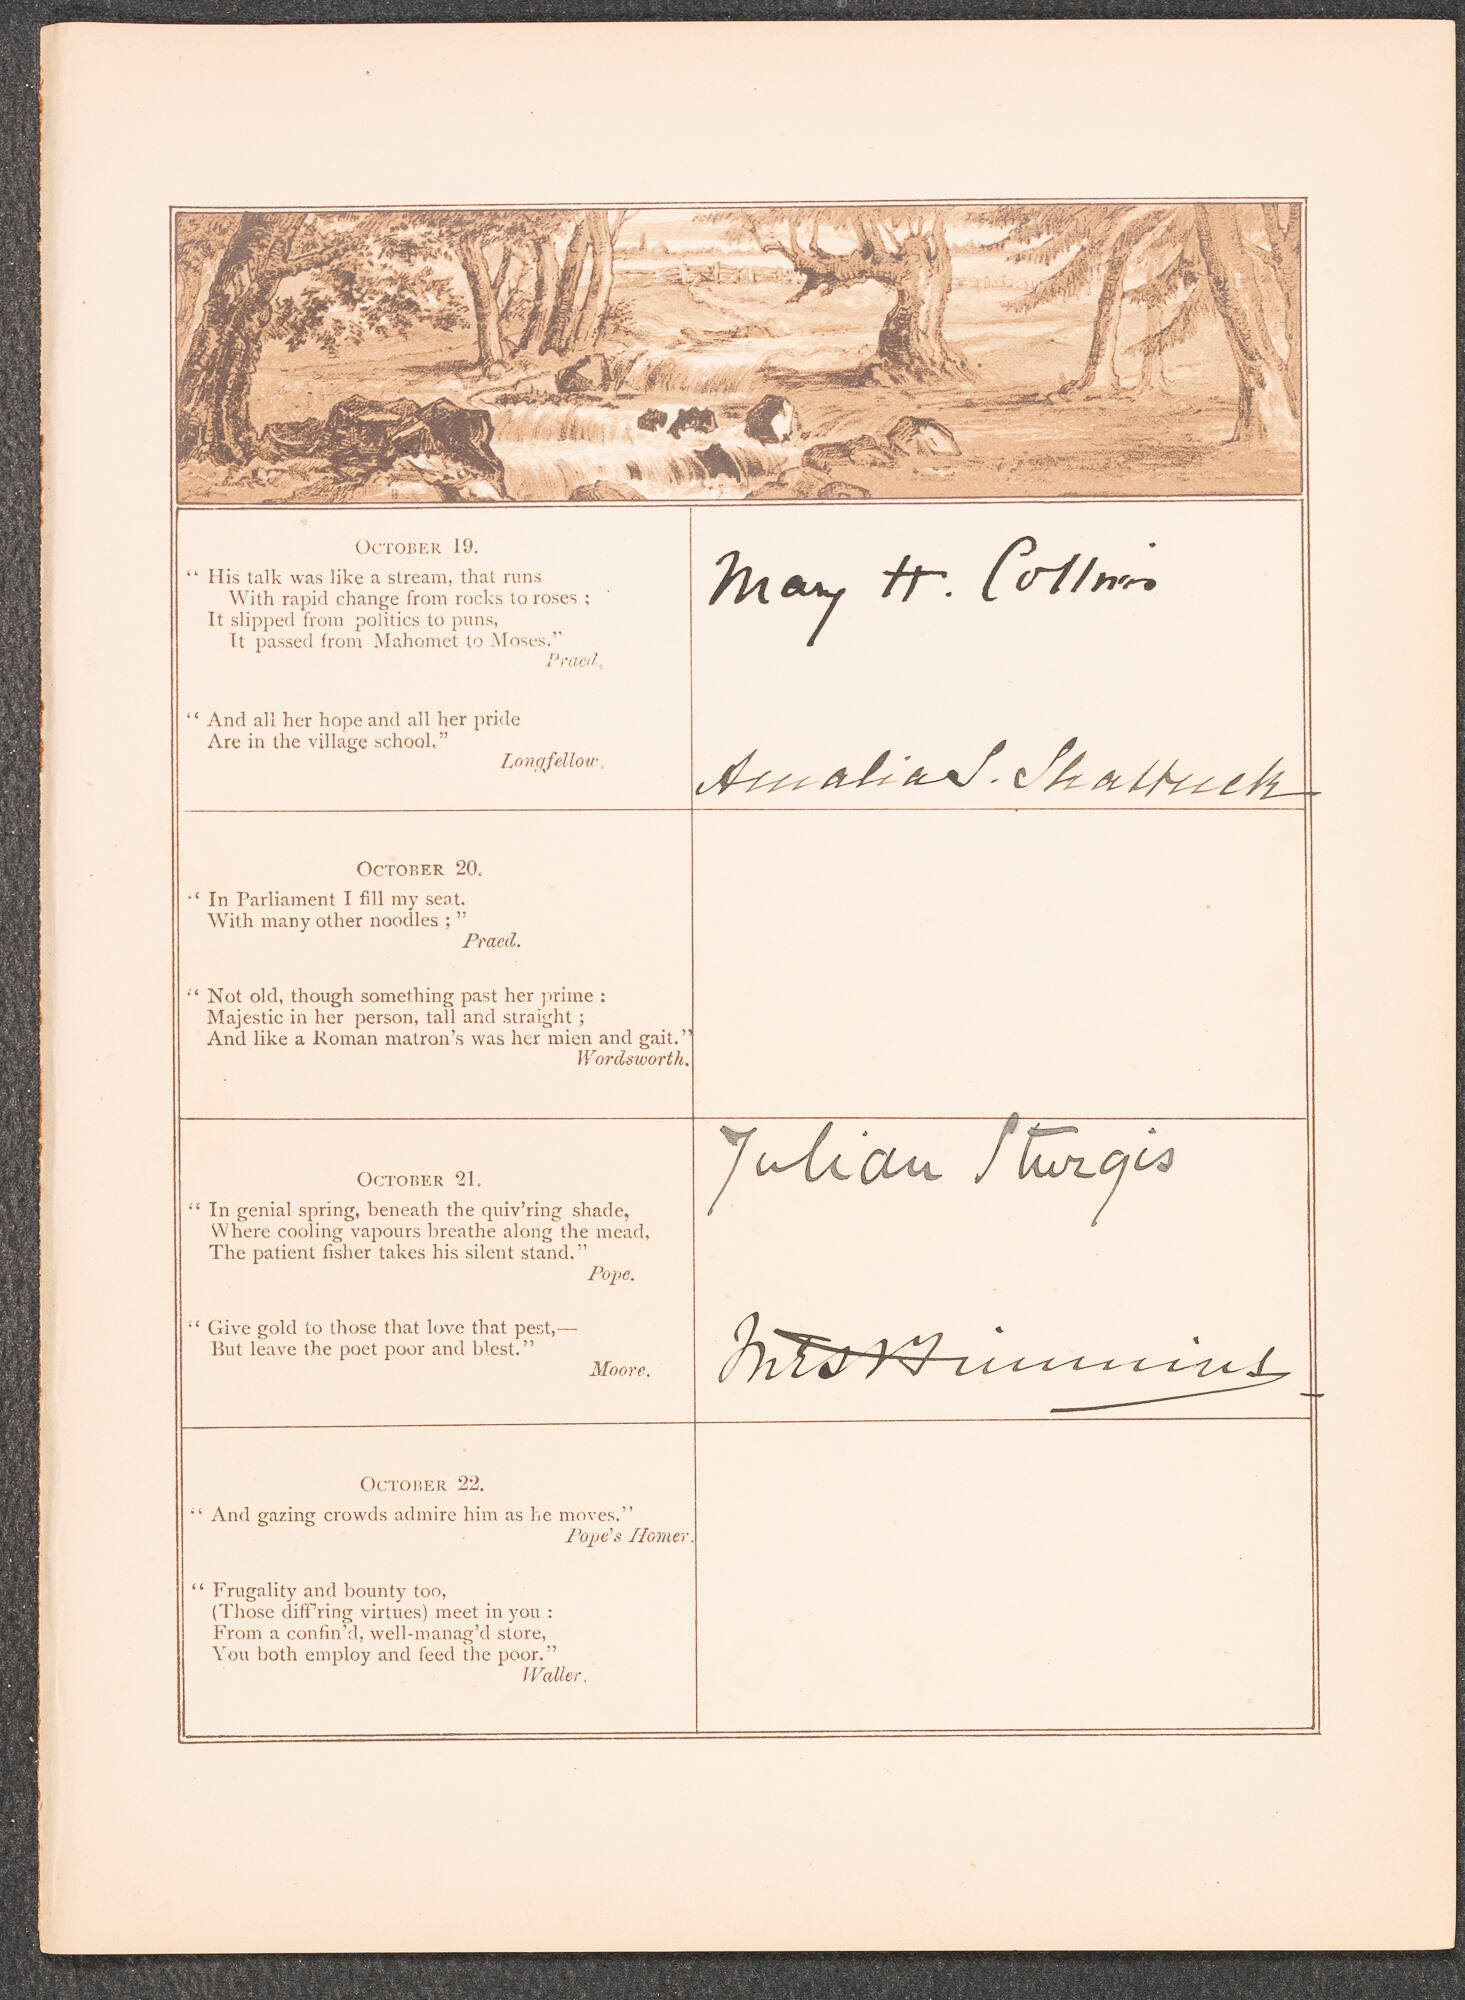 OCTOBER 19.
“ His talk was like a stream, that runs
With rapid change from rocks to roses ;
It slipped from politics to puns,
It passed from Mahomet to Moses.”
Praed.
Mary H. Collins
“ And all her hope and all her pride
Are in the village school.”
Longfellow.
Amalia S. Shattuck
OCTOBER 20.
“ In Parliament I fill my seat.
With many other noodles ; ”
Praed.
“ Not old, though something past her prime :
Majestic in her person, tall and straight ;
And like a Roman matron's was her mien and gait.”
Wordsworth.
OCTOBER 21.
“ In genial spring, beneath the quiv'ring shade,
Where cooling vapours breathe along the mead,
The patient fisher takes his silent stand.”
Pope.
Julian Sturgis
“ Give gold to those that love that pest,—
But leave the poet poor and blest.”
Moore.
Mrs
OCTOBER 22.
“ And gazing crowds admire him as he moves.”
Pope's Homer.
“ Frugality and bounty too,
(Those diff'ring virtues) meet in you :
From a confin'd, well-manag'd store,
You both employ and feed the poor.”
Waller.